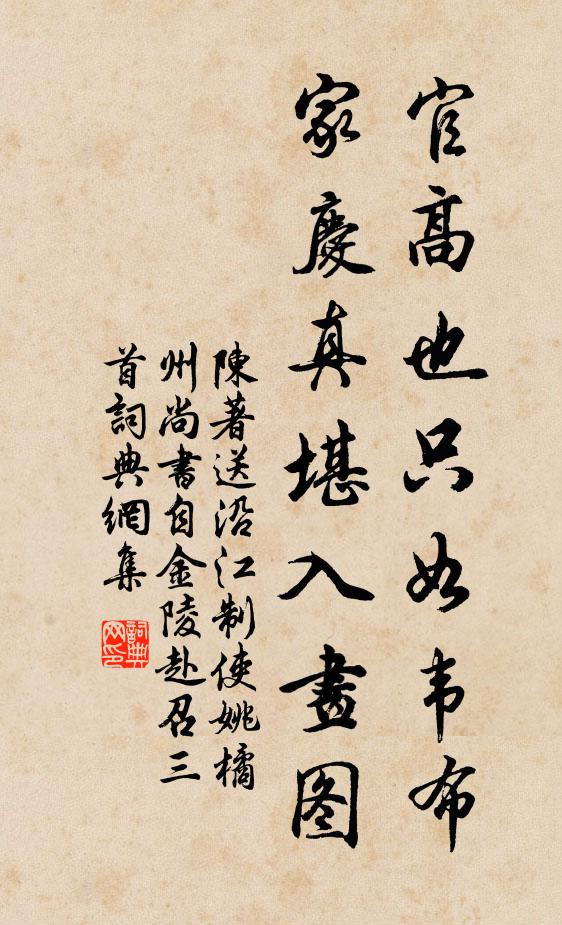 官高也只如韦布
家慶真堪入畫图
陳著送沿江制使姚橘
州尚書自金陵赴召三
首詞典網集
詞典
网印